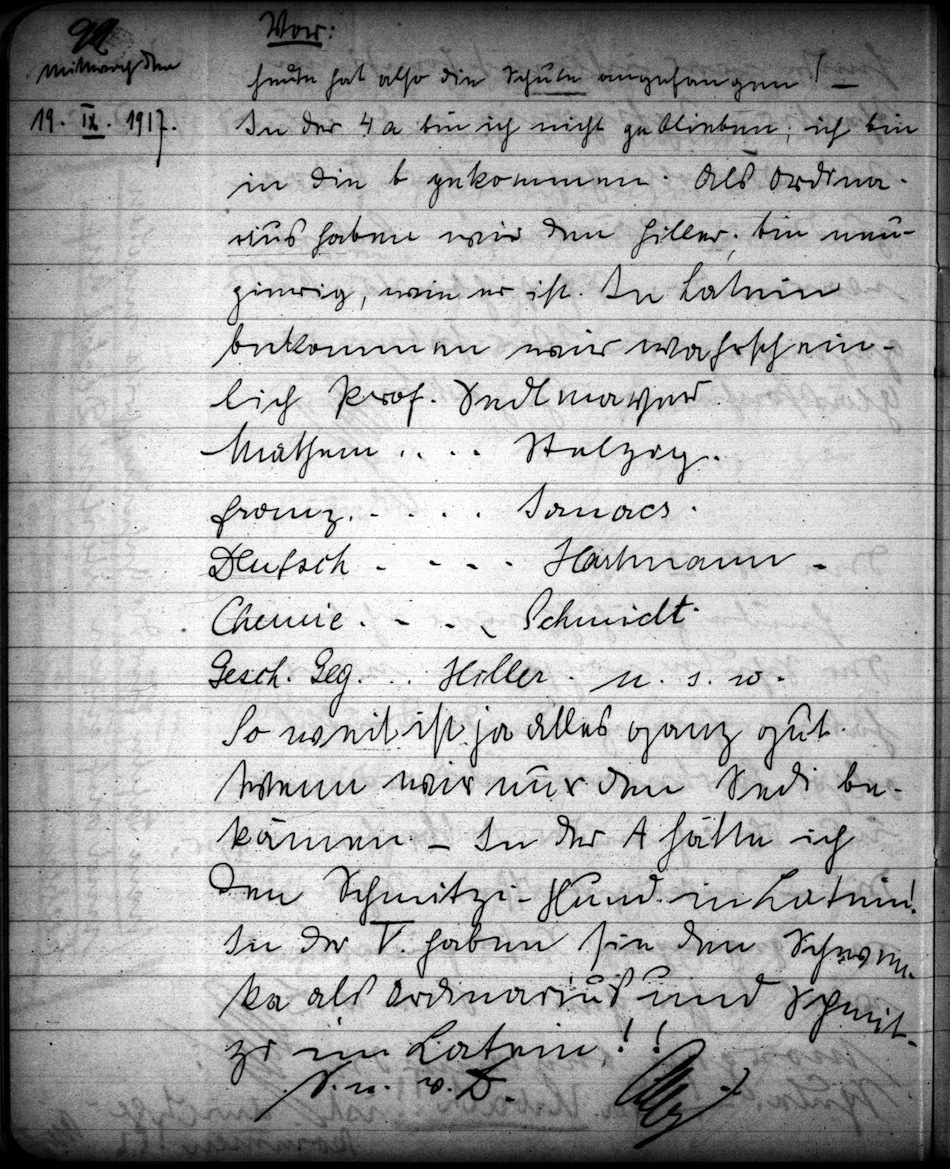 Vor:
Mittwoch den
heute hat also die Schule angefangen! –
19. IX. 1917.
In der 4 a bin ich nicht geblieben; ich bin
in die b gekommen. Als Ordina-
rius haben wir den Hiller; bin neu-
gierig, wie er ist. In Latein
bekommen wir wahrschein-
lich Prof. Sedlmayer
Mathem . . . . Stelzig.
Franz. . . . .
Deutsch . . . . Hartmann.
Chemie . . . . Schmidt.
Gesch. Geg. . . Hiller. u. s. w.
So weit ist ja alles ganz gut.
Wenn wir nur den Sedi be-
kämen – In der A hätte ich
den Schmitzi-Hund in Latein!
In der V. haben sie den
ka als Ordinarius und Schmit-
zi in Latein!!